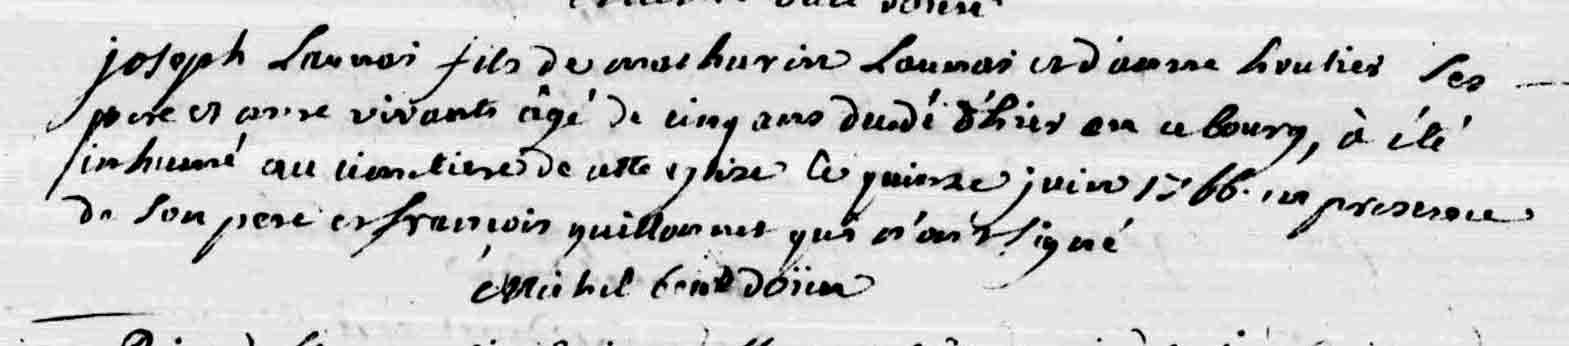 joseph Launai fils de mathurin Launai et d'anne houlier ses
pere et mere vivants âgé de cinq ans decédé d'hier en ce bourg, à été
inhumé au cimetiere de cette eglise le quinze juin 1766. en presence
de son pere et françois guillonnet qui n'ont signé
Michel doïen